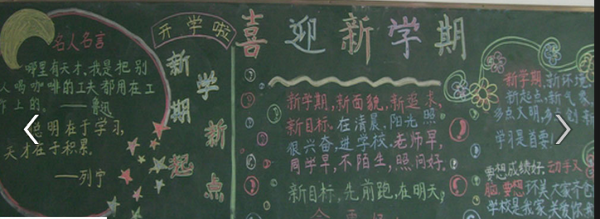 开学啦
喜迎新学期
名人名言
哪里有天才,我是把别
人喝咖啡的工夫都用在工
作上的。——鲁迅
聪明在于学习,
天才在于积累。
——列宁
新学期
新起点
新学期,新面貌,新追求,
新目标。在清晨,阳光照
很兴奋,进学校。老师早,
同学早,不陌生,照问好。
新目标,先前跑,在明天,
新学期,新环境
新起点,新气象
学习是首要!
要想成绩好,动手又
脑,要想
学校是我家,关爱你我